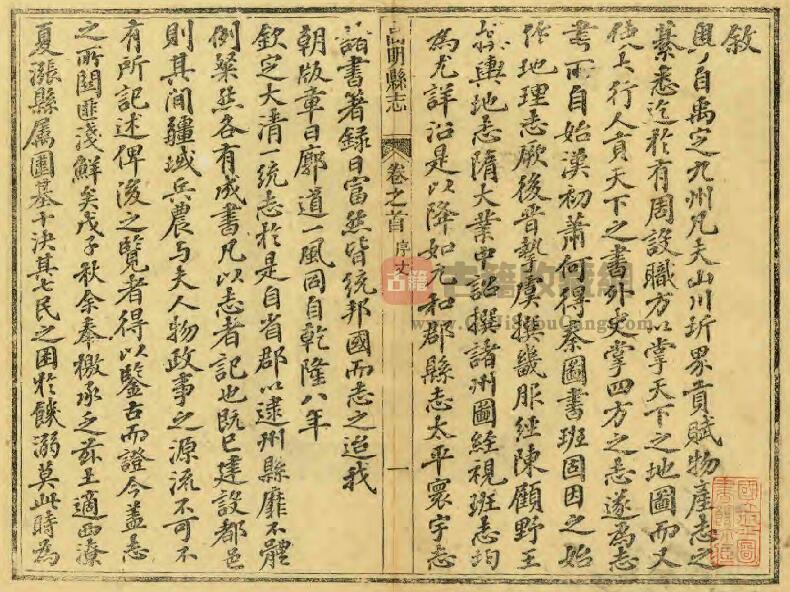 叙
輿自禹定九州凡夫山川圻界貢賦物產志之
綦悉迄於有周設職方以掌天下之地圖而又
使大行人貢天下之書外史掌四方之志遂為志
書所自始漢初蕭何得秦圖書班固因之始
作地理志厥後晉摯虞撰畿服經陳顧野王
輿地志隋大業中詔撰諸州圖經視班志均
為尤詳沿是以降如元和郡縣志太平寰宇志
高明縣志 卷之首 序文 一
諸書著錄日富然皆統邦國而志之迨我
朝版章日廓道一風同自乾隆八年
欽定大清一統志於是自省郡以逮州縣靡不體
例粲然各有成書凡以志者記也既已建設都邑
則其間疆域兵農与夫人物政事之源流不可不
有所記述俾後之覽者得以鑒古而證今蓋志
之所關匪淺鮮矣戊子秋余奉檄承乏茲土適西潦
夏漲縣属圍基十決其七民之困於饑溺莫此時為
古籍